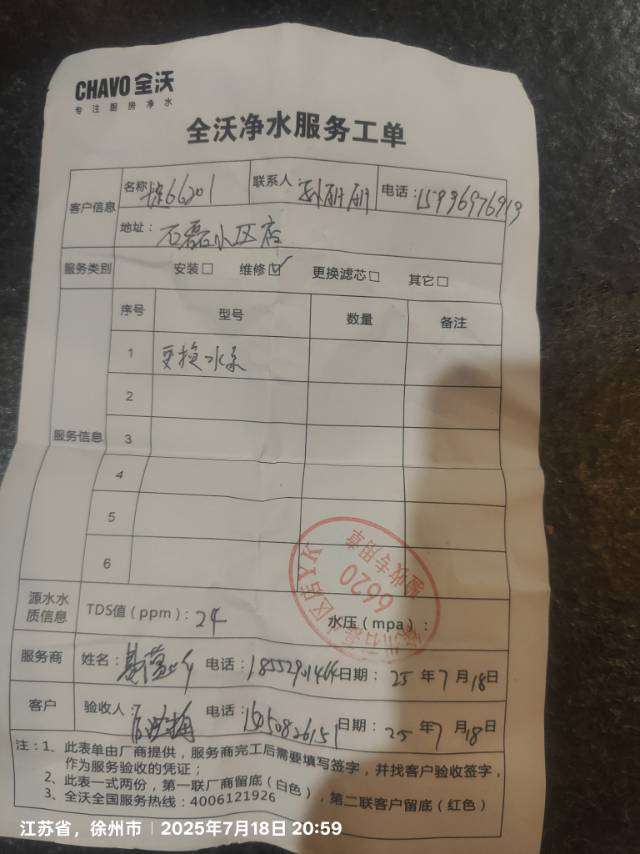 CHAVO 全沃
专注厨房净水
全沃净水服务工单
客户信息 名称 66201 联系人 电话：15996976919
地址：石磊小区店
服务类别 安装□ 维修☑ 更换滤芯□ 其它□
服务信息 序号 型号 数量 备注
1 更换水泵
2
3
4
5
6
源水水质信息 TDS值（ppm）：24 水压（mpa）：
6620
验收专用章
服务商 姓名： 电话：18552901464 日期：25年7月18日
客户 验收人： 电话：15050826151 日期：25年7月18日
注：1、此表单由厂商提供，服务商完工后需要填写签字，并找客户验收签字，
作为服务验收的凭证；
2、此表一式两份，第一联厂商留底（白色），第二联客户留底（红色）
3、全沃全国服务热线：4006121926
江苏省，徐州市 | 2025年7月18日 20:59